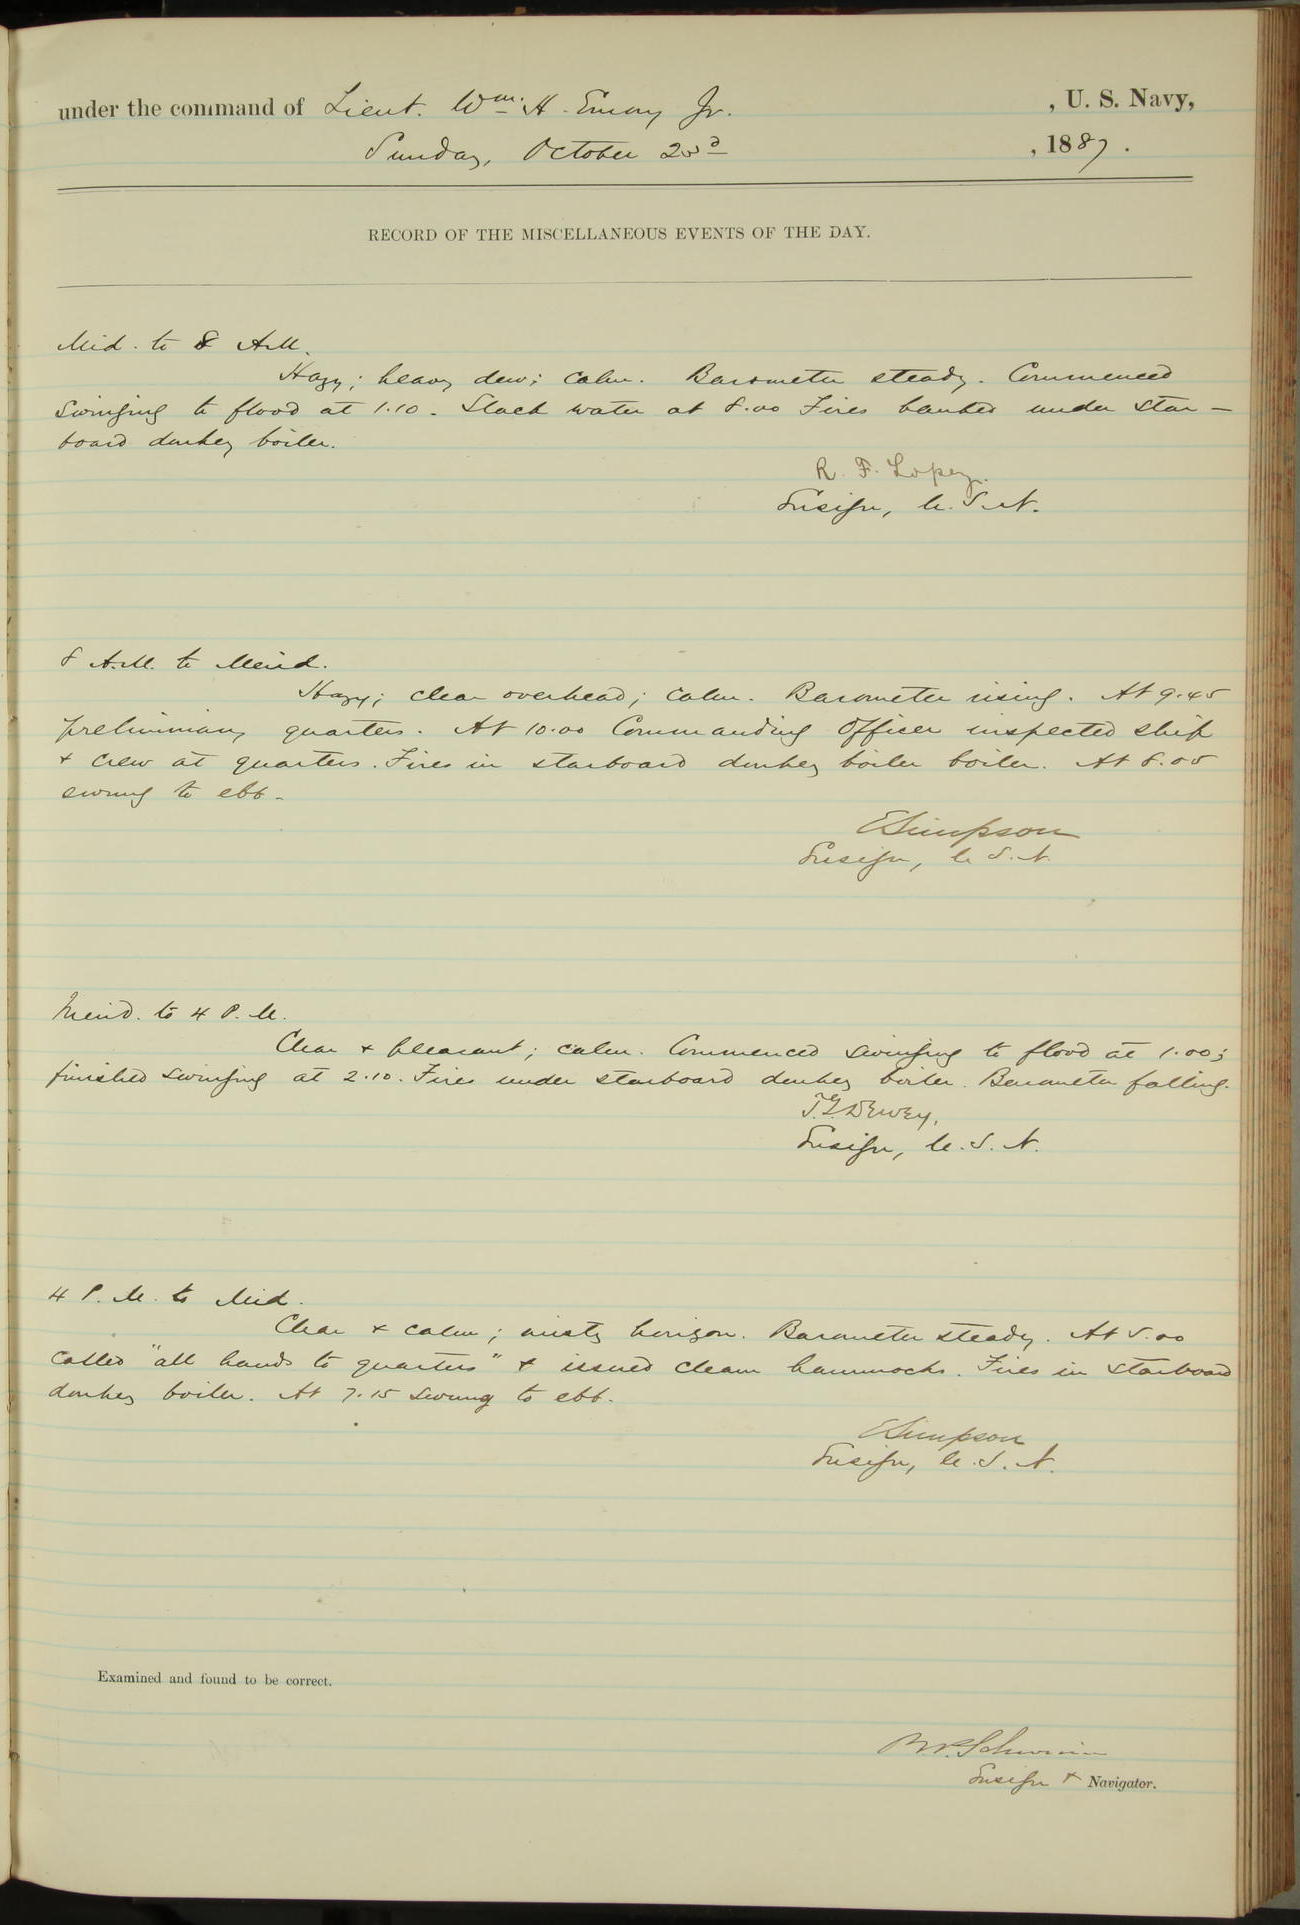 under the command of Lieut. Wm. H. Emory Jr. , U. S. Navy,
Sunday, October 23d , 1887.
RECORD OF THE MISCELLANEOUS EVENTS OF THE DAY.
Mid. to 8 A.M.
Hazy; heavy dew; calm. Barometer steady. Commenced
swinging to flood at 1.10. Slack water at 8.00 Fires banked under star-
board donkey boiler.
R. F. Lopez.
Ensign, U.S.N.
8 A.M. to Merid.
Hazy; clear overhead; calm. Barometer rising. At 9.45
preliminary quarters. At 10.00 Commanding Officer inspected ship
& crew at quarters. Fires in starboard donkey boiler boiler. At 8.05
swung to ebb.
E Simpson
Ensign, U.S.N.
Merid. to 4 P.M.
Clear & pleasant; calm. Commenced swinging to flood at 1.00;
finished swinging at 2.10. Fires under starboard donkey boiler. Barometer falling.
T.G. Dewey,
Ensign, U.S.N.
4 P.M. to Mid.
Clear & calm; misty horizon. Barometer steady. At 5.00
called "all hands to quarters" & issued clean hammocks. Fires in starboard
donkey boiler. At 7.15 swung to ebb.
E Simpson
Ensign, U.S.N.
Examined and found to be correct.
Schwerin
Ensign & Navigator.